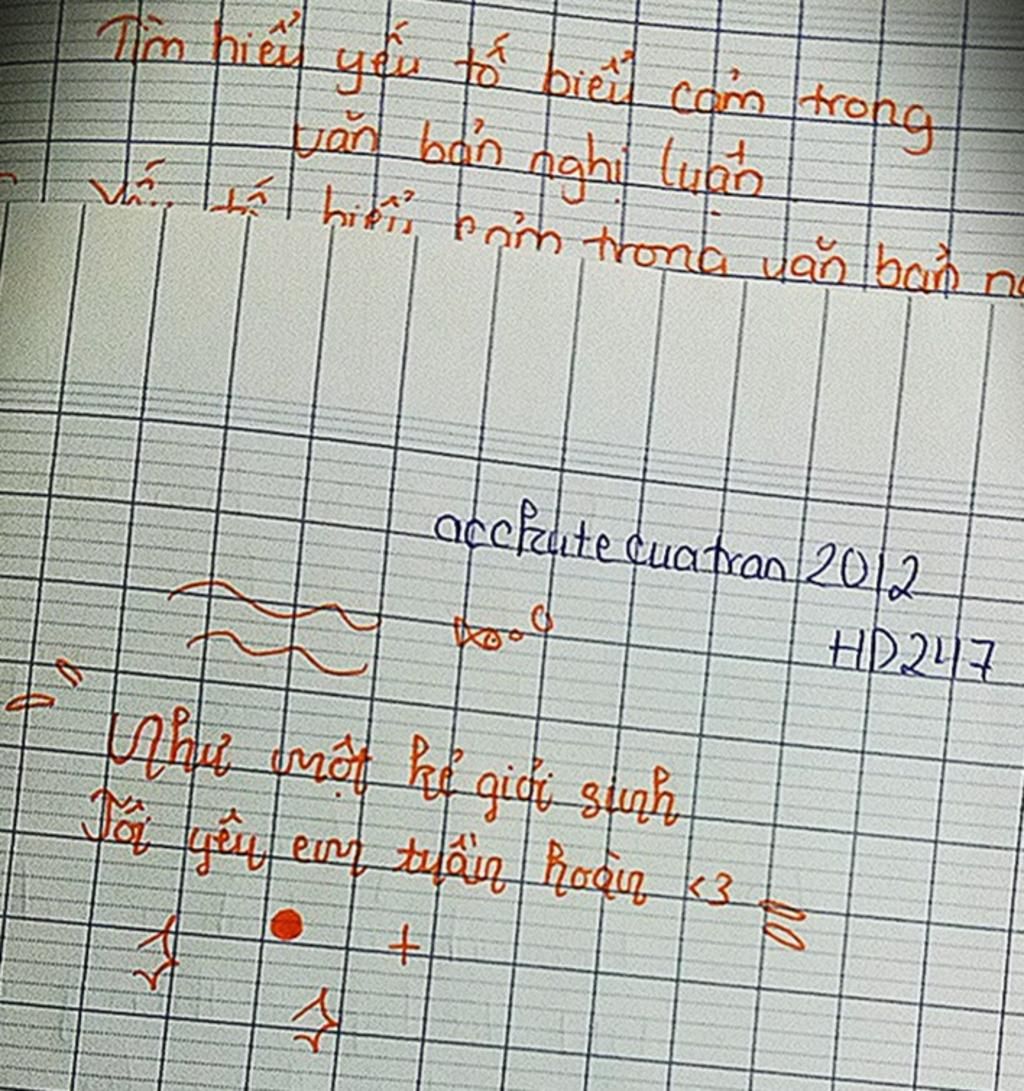 Tìm hiểu yếu tố biểu cảm trong
văn bản nghị luận
yếu tố biểu cảm trong văn bản
acckutecuatran 2012
HD247
Như một kẻ giỏi sinh
Tôi yêu em tuần hoàn <3